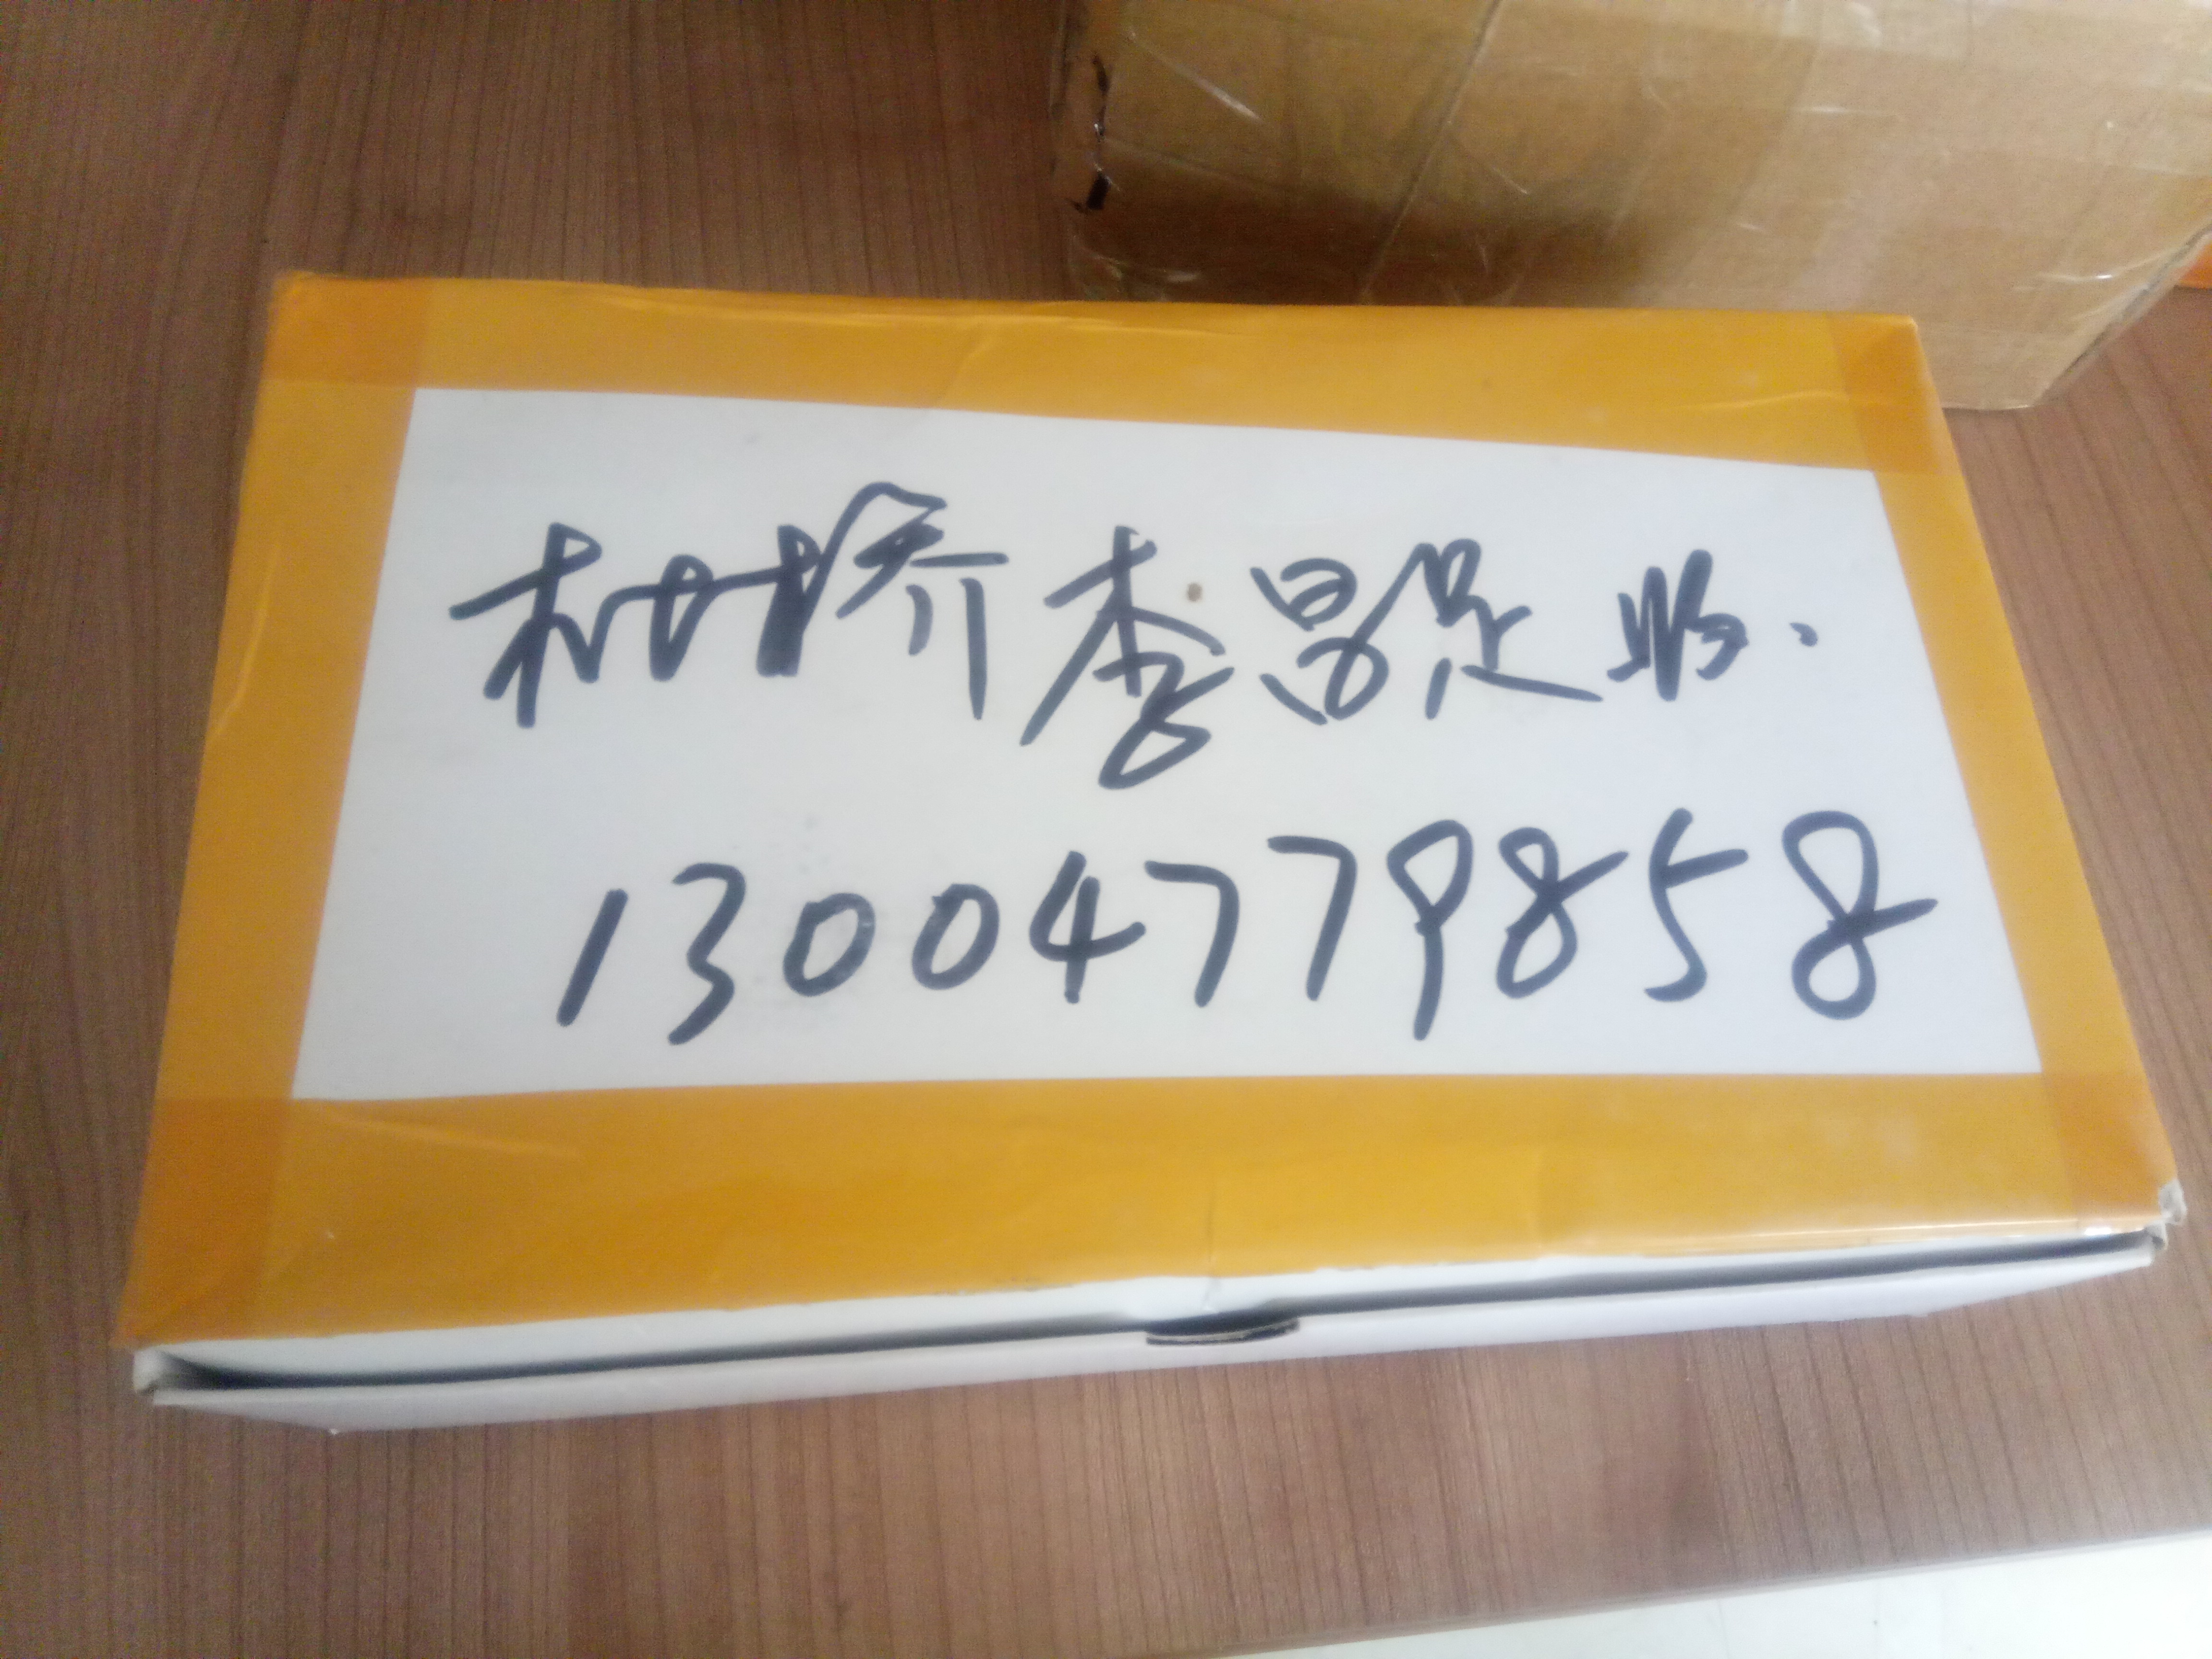 李昌足收.
13004779858